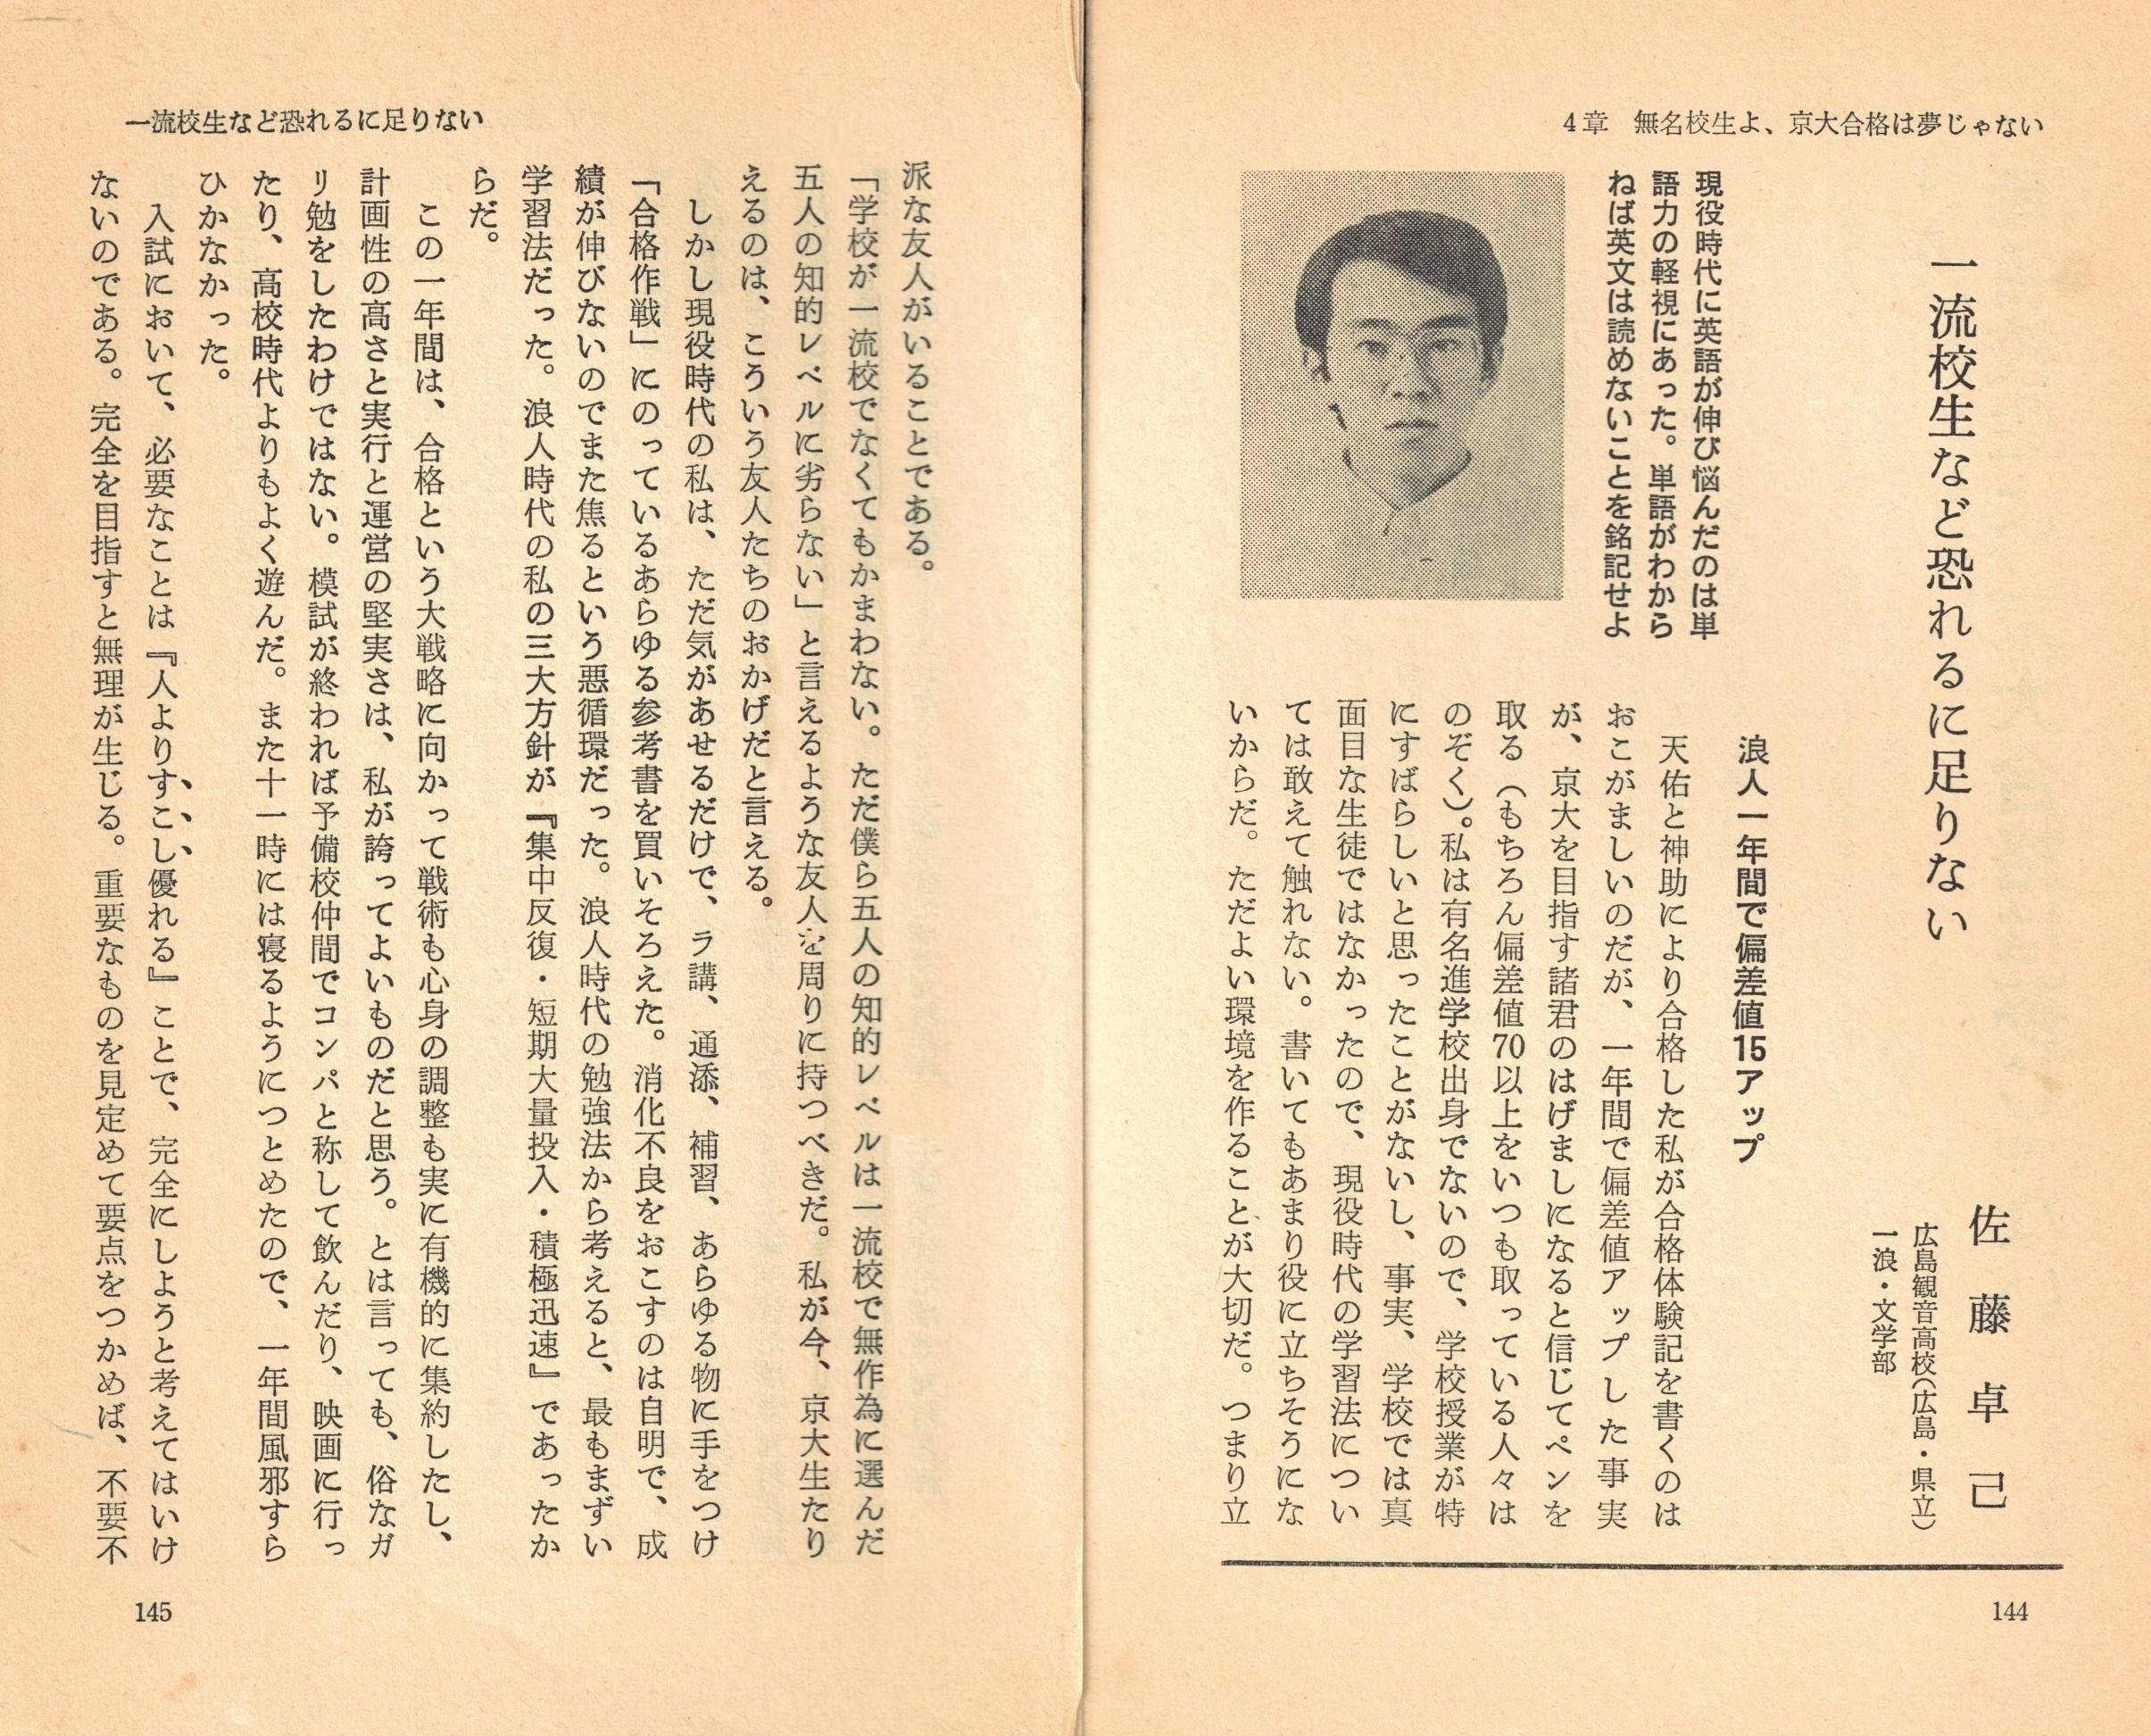 4章　無名校生よ、京大合格は夢じゃない
一流校生など恐れるに足りない
佐藤卓己
広島観音高校（広島・県立）
一浪・文学部
現役時代に英語が伸び悩んだのは単
語力の軽視にあった。単語がわから
ねば英文は読めないことを銘記せよ
浪人一年間で偏差値15アップ
天佑と神助により合格した私が合格体験記を書くのは
おこがましいのだが、一年間で偏差値アップした事実
が、京大を目指す諸君のはげましになると信じてペンを
取る（もちろん偏差値70以上をいつも取っている人々は
のぞく）。私は有名進学校出身でないので、学校授業が特
にすばらしいと思ったことがないし、事実、学校では真
面目な生徒ではなかったので、現役時代の学習法につい
ては敢えて触れない。書いてもあまり役に立ちそうにな
いからだ。ただよい環境を作ることが大切だ。つまり立
144
一流校生など恐れるに足りない
派な友人がいることである。
「学校が一流校でなくてもかまわない。ただ僕ら五人の知的レベルは一流校で無作為に選んだ
五人の知的レベルに劣らない」と言えるような友人を周りに持つべきだ。私が今、京大生たり
えるのは、こういう友人たちのおかげだと言える。
しかし現役時代の私は、ただ気があせるだけで、ラ講、通添、補習、あらゆる物に手をつけ
「合格作戦」にのっているあらゆる参考書を買いそろえた。消化不良をおこすのは自明で、成
績が伸びないのでまた焦るという悪循環だった。浪人時代の勉強法から考えると、最もまずい
学習法だった。浪人時代の私の三大方針が『集中反復・短期大量投入・積極迅速』であったか
らだ。
この一年間は、合格という大戦略に向かって戦術も心身の調整も実に有機的に集約したし、
計画性の高さと実行と運営の堅実さは、私が誇ってよいものだと思う。とは言っても、俗なガ
リ勉をしたわけではない。模試が終われば予備校仲間でコンパと称して飲んだり、映画に行っ
たり、高校時代よりもよく遊んだ。また十一時には寝るようにつとめたので、一年間風邪すら
ひかなかった。
入試において、必要なことは『人よりすこし優れる』ことで、完全にしようと考えてはいけ
ないのである。完全を目指すと無理が生じる。重要なものを見定めて要点をつかめば、不要不
145